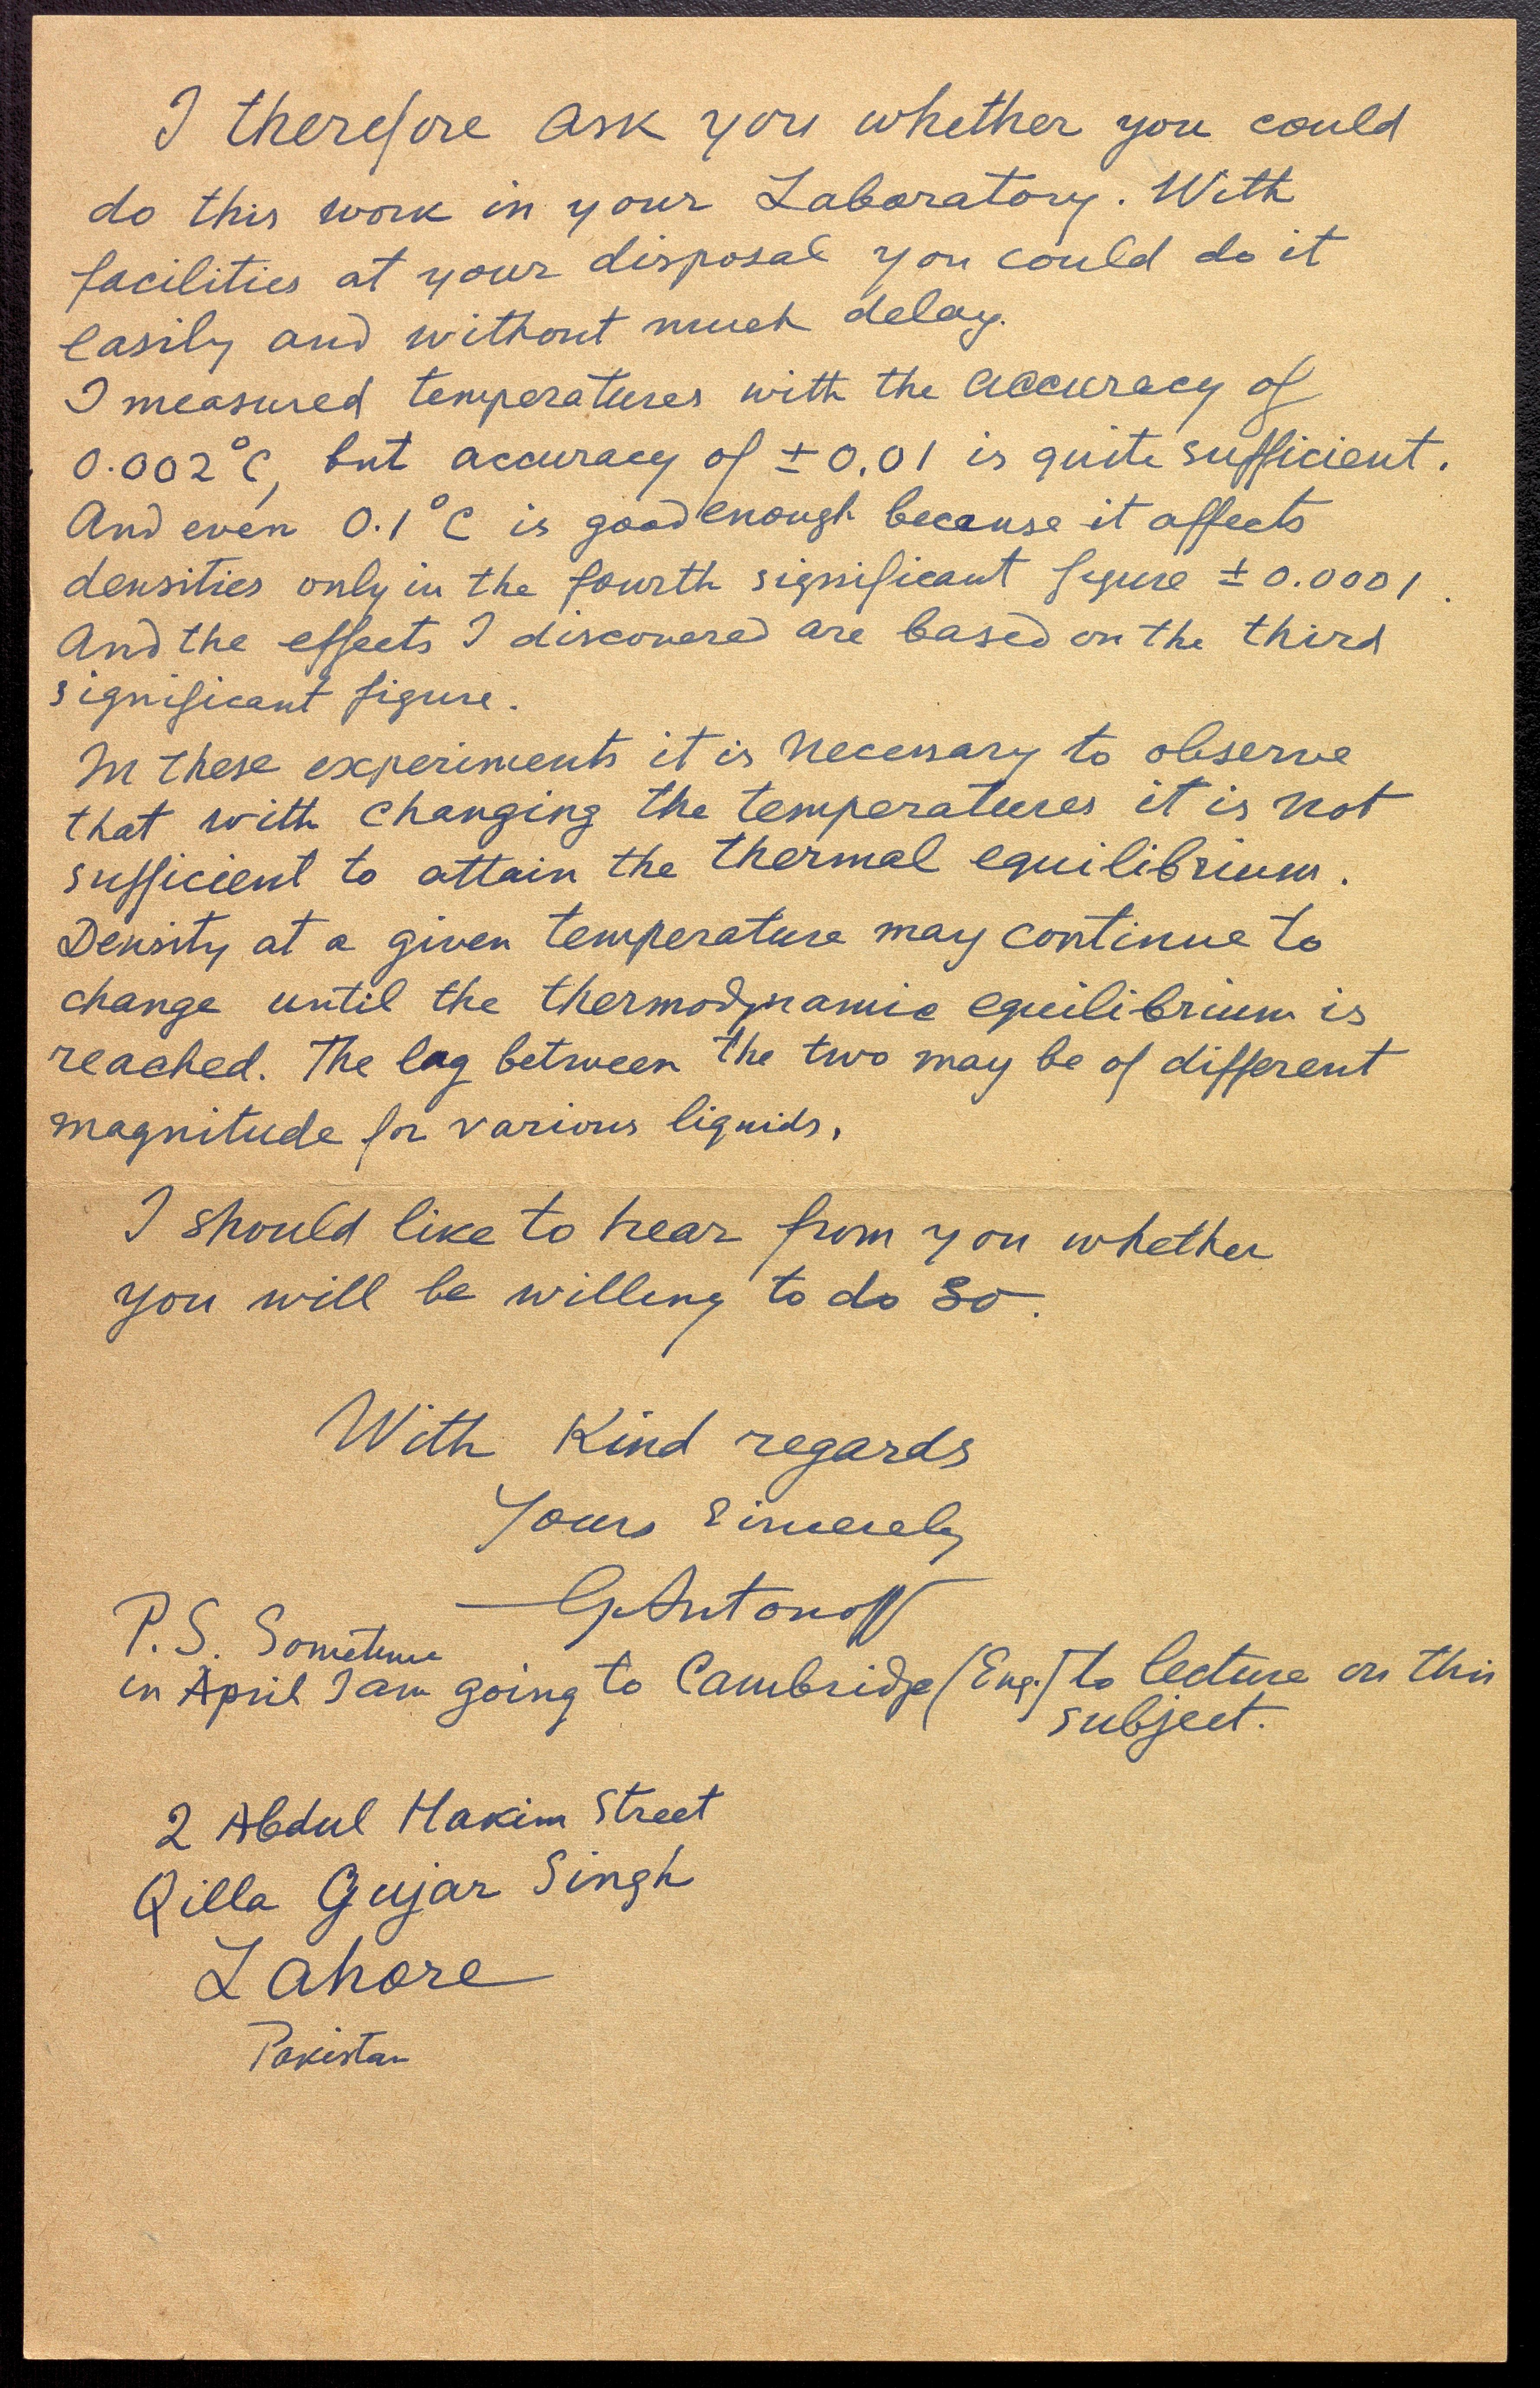 I therefore ask you whether you could
do this work in your Laboratory. With
facilities at your disposal you could do it
easily and without much delay.
I measured temperatures with the accuracy of
0.002°C, but accuracy of ± 0.01 is quite sufficient.
And even 0.1°C is good enough because it affects
densities only in the fourth significant figure ± 0.0001.
And the effects I discovered are based on the third
significant figure.
In these experiments it is necessary to observe
that with changing the temperatures it is not
sufficient to attain the thermal equilibrium.
Density at a given temperature may continue to
change until the thermodynamic equilibrium is
reached. The lag between the two may be of different
magnitude for various liquids.
I should like to hear from you whether
you will be willing to do so.
With Kind regards
Yours Sincerely
G. Antonoff
P.S. Sometime
in April I am going to Cambridge (Eng.) to lecture on this
subject.
2 Abdul Hakim Street
Qilla Gujar Singh
Lahore
Pakistan